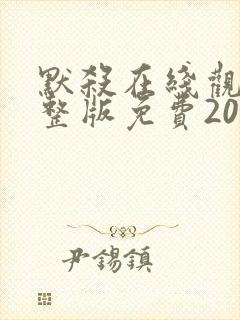 默殺在綫觀
整版免費20
尹錫鎮